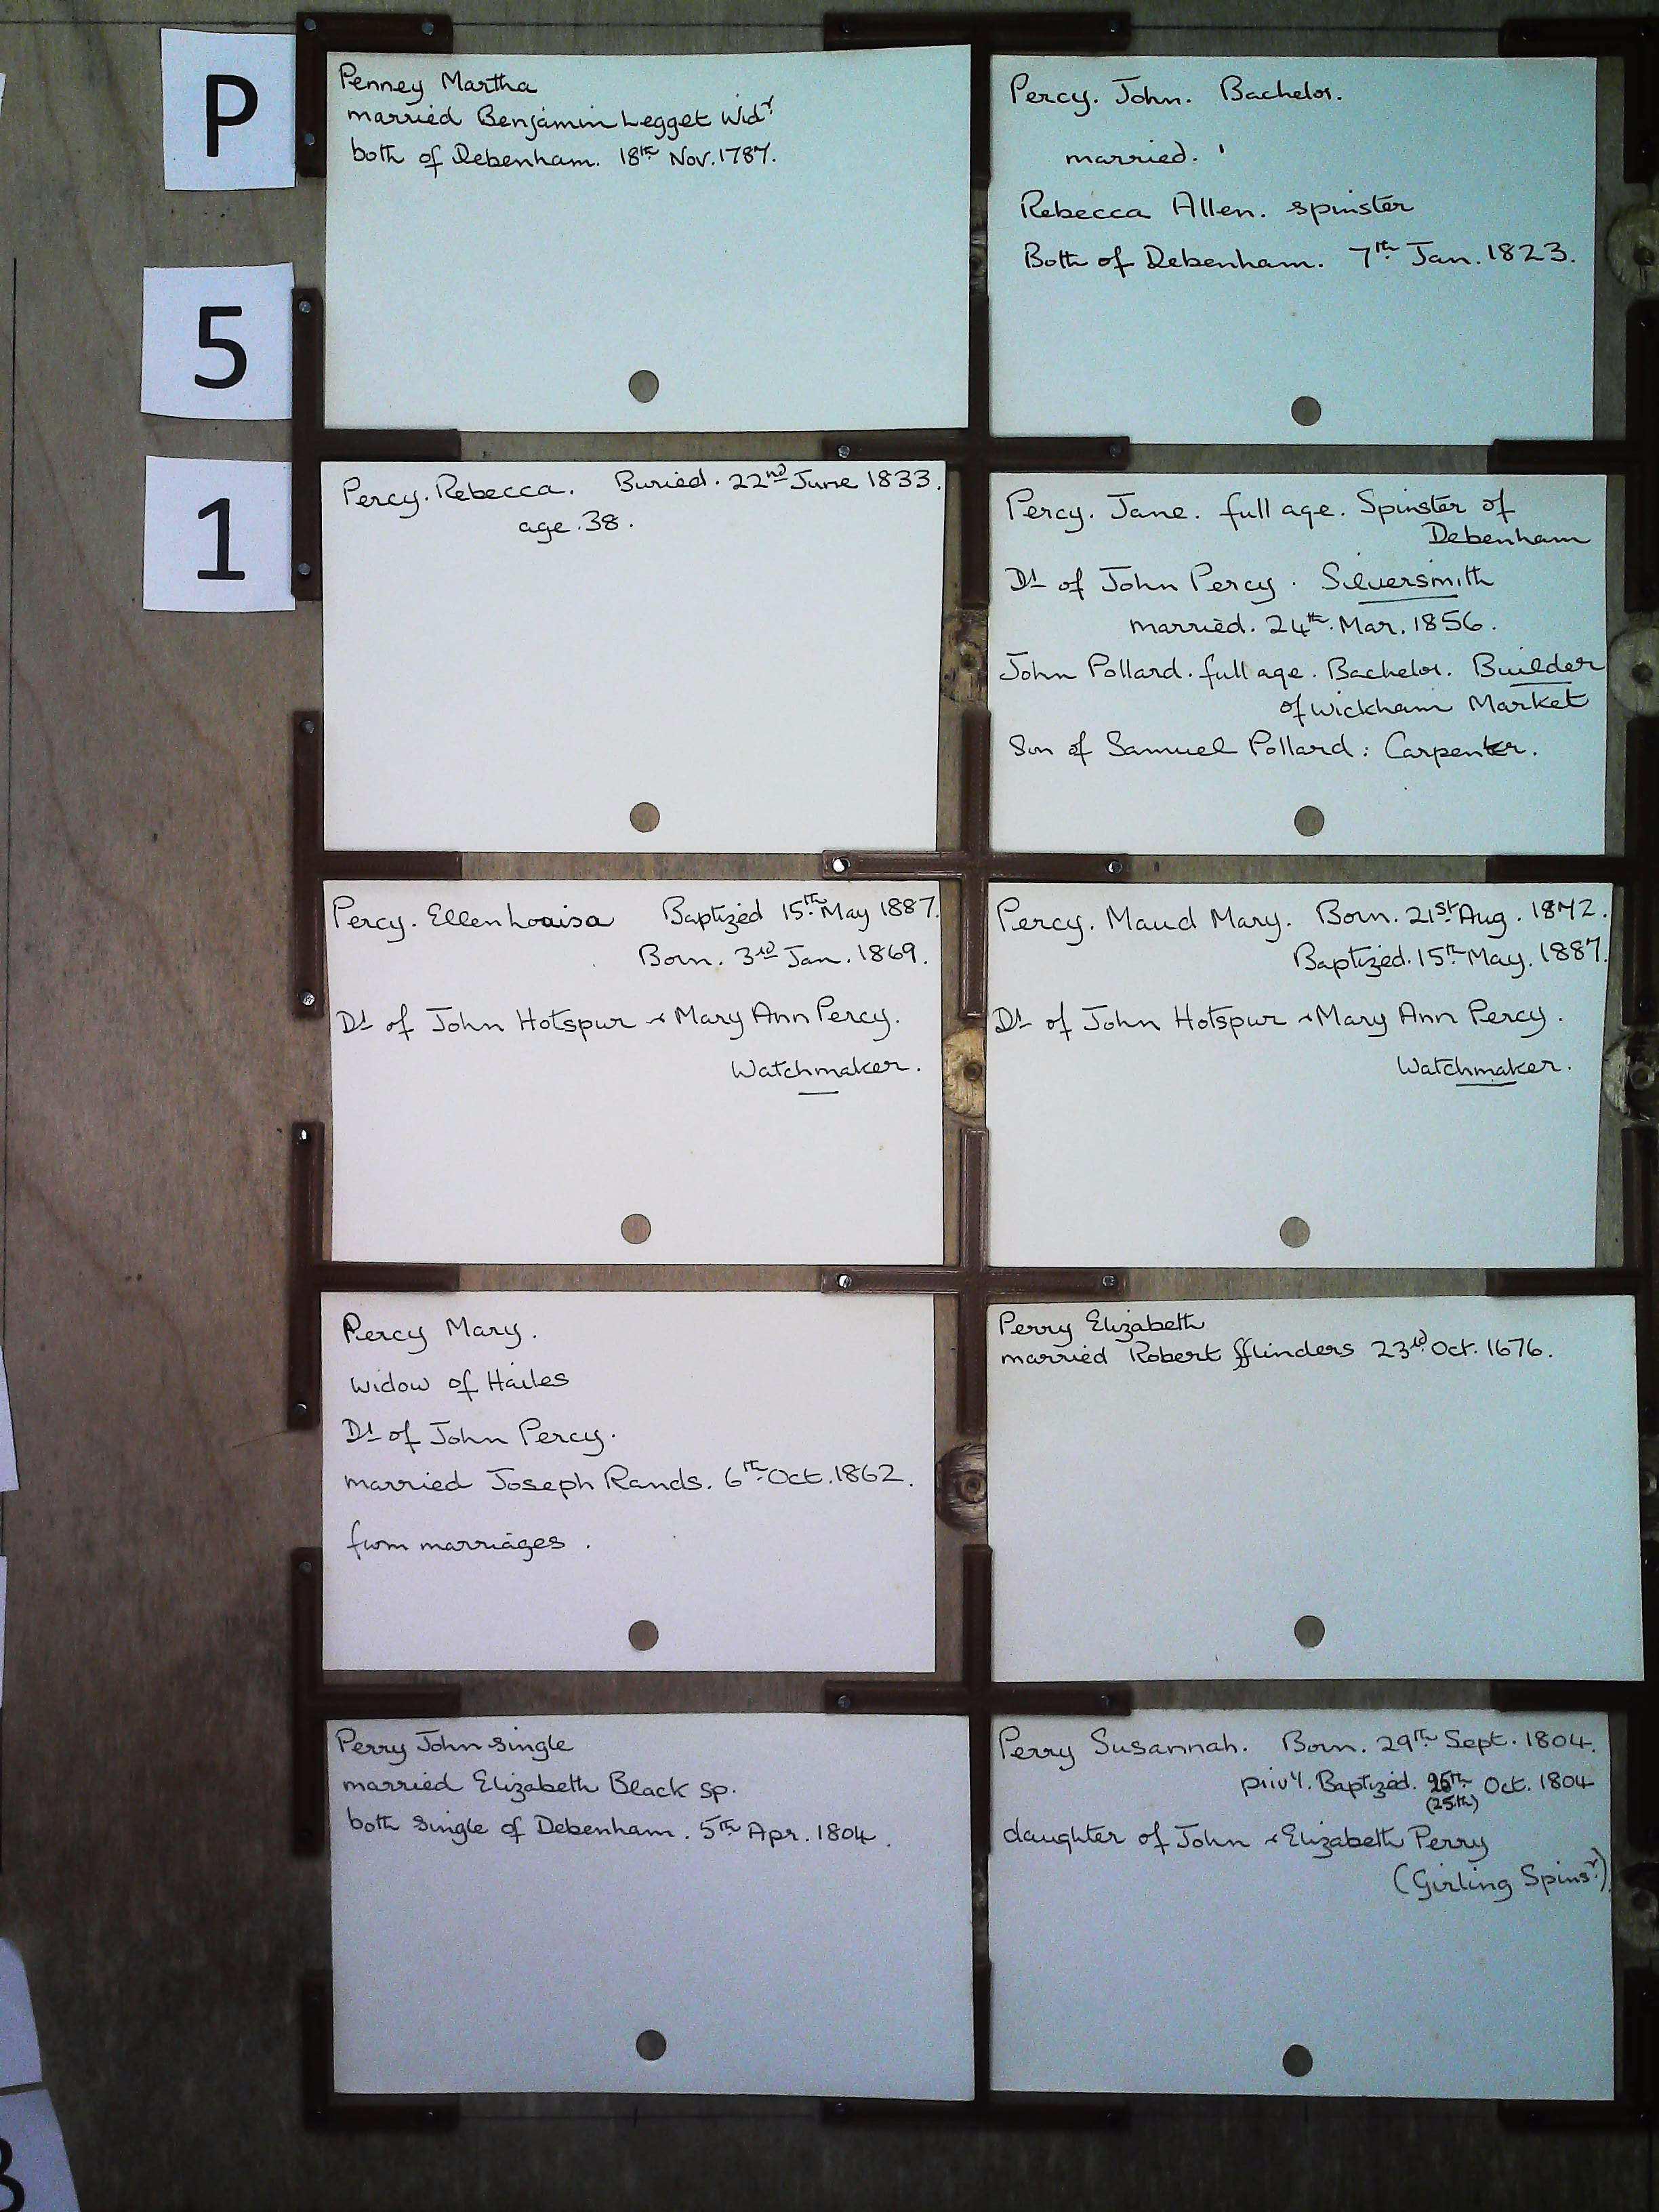 P
5
1
Penney Martha
married Benjamin Legget Widr
both of Debenham. 18th Nov. 1787.
Percy. John. Bachelor.
married.
Rebecca Allen. spinster
Both of Debenham. 7th Jan. 1823.
Percy. Rebecca. Buried. 22nd June 1833.
age. 38.
Percy. Jane. full age. Spinster of
Debenham
Dt of John Percy. Silversmith
married. 24th. Mar. 1856.
John Pollard. full age. Bachelor. Builder
of Wickham Market
Son of Samuel Pollard: Carpenter.
Percy. Ellen Louisa Baptized 15th May 1887.
Born. 3rd Jan. 1869.
Dt of John Hotspur & Mary Ann Percy.
Watchmaker.
Percy. Maud Mary. Born. 21st Aug. 1872.
Baptized. 15th May. 1887.
Dt of John Hotspur & Mary Ann Percy.
Watchmaker.
Percy Mary.
widow of Hailes
Dt of John Percy.
married Joseph Rands. 6th Oct. 1862.
from marriages.
Perry Elizabeth
married Robert fflinders 23rd Oct. 1676.
Perry John single
married Elizabeth Black sp.
both single of Debenham. 5th Apr. 1804.
Perry Susannah. Born. 29th Sept. 1804.
privy. Baptized. 25th Oct. 1804
(25th)
daughter of John & Elizabeth Perry
(Girling Spinsr)